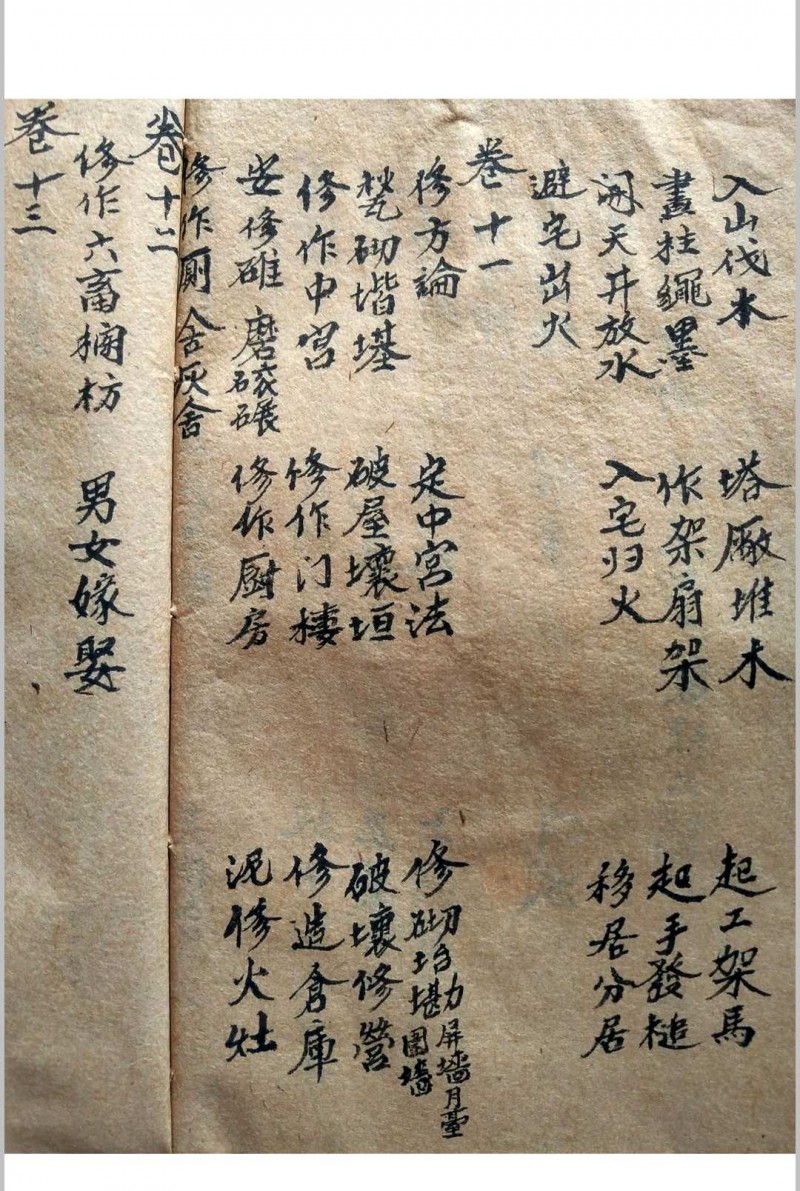 入山伐木 塔廠堆木 起工架馬
畫柱繩墨 作架扇架 起手發槌
開天井放水 入宅归火 移居分居
避宅出火
卷十一
修方論 定中宮法 修砌坮勘 屏墙月臺 圍墻
甃砌堦基 破屋壞垣 破壞修營
修作中宮 修作门樓 修造倉庫
安修碓磨碾 修作厨房 泥修火灶
修作厠舍灰舍
卷十二
修作六畜栏枋 男女嫁娶
卷十三